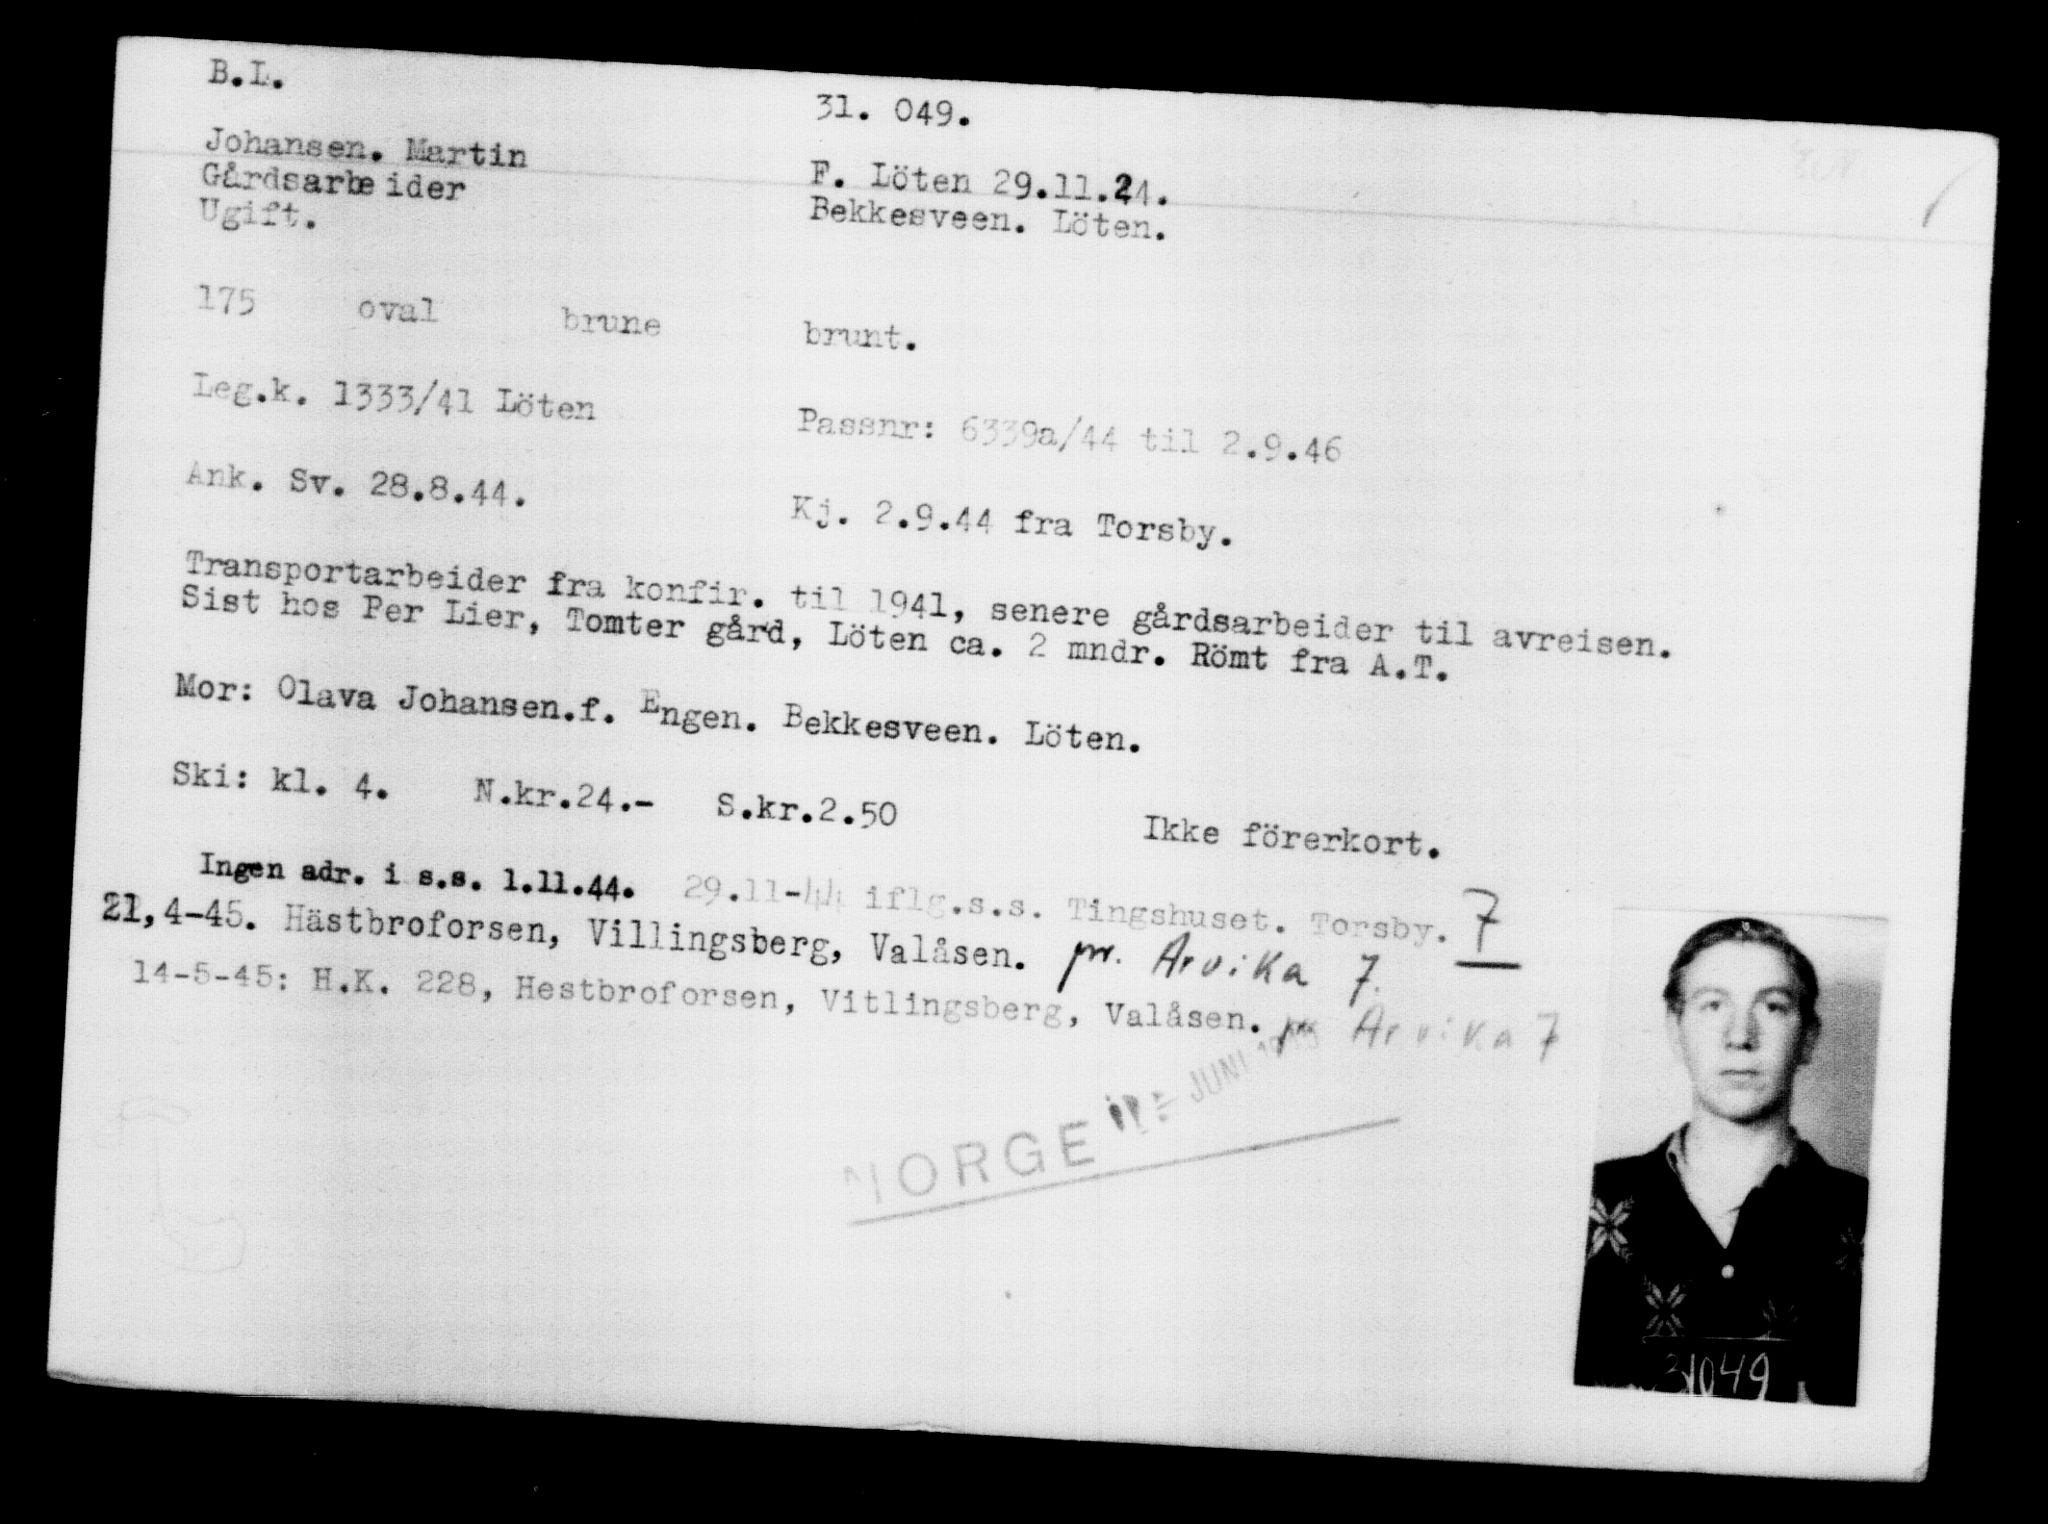 B.L.
31. 049.
Johansen. Martin
F. Löten 29.11.24.
Gårdsarbeider
Bekkesveen. Löten.
Ugift.
175 oval brune brunt.
Leg.k. 1333/41 Löten
Passnr: 6339a/44 til 2.9.46
Ank. Sv. 28.8.44.
Kj. 2.9.44 fra Torsby.
Transportarbeider fra konfir. til 1941, senere gårdsarbeider til avreisen.
Sist hos Per Lier, Tomter gård, Löten ca. 2 mndr. Römt fra A.T.
Mor: Olava Johansen.f. Engen. Bekkesveen. Löten.
Ski: kl. 4. N.kr.24.- S.kr.2.50 Ikke förerkort.
Ingen adr. i s.s. 1.11.44. 29.11-44 iflg.s.s. Tingshuset. Torsby. 7
21,4-45. Hästbroforsen, Villingsberg, Valåsen. pr. Arvika 7.
14-5-45: H.K. 228, Hestbroforsen, Vitlingsberg, Valåsen. pr Arvika 7
NORGE JUNI
31049